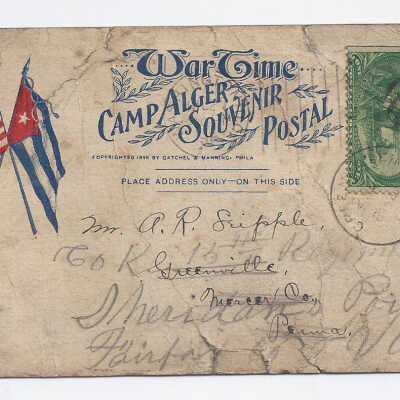 War Time
CAMP ALGER
SOUVENIR
POSTAL
COPYRIGHTED 1898 BY GATCHEL & MANNING, PHILA
PLACE ADDRESS ONLY—ON THIS SIDE
Mr. A. R. Seipple,
Co K. 15th Regim
Greenville,
Mercer Co,
Sheridans Po
Penna.
Fairfax Co V